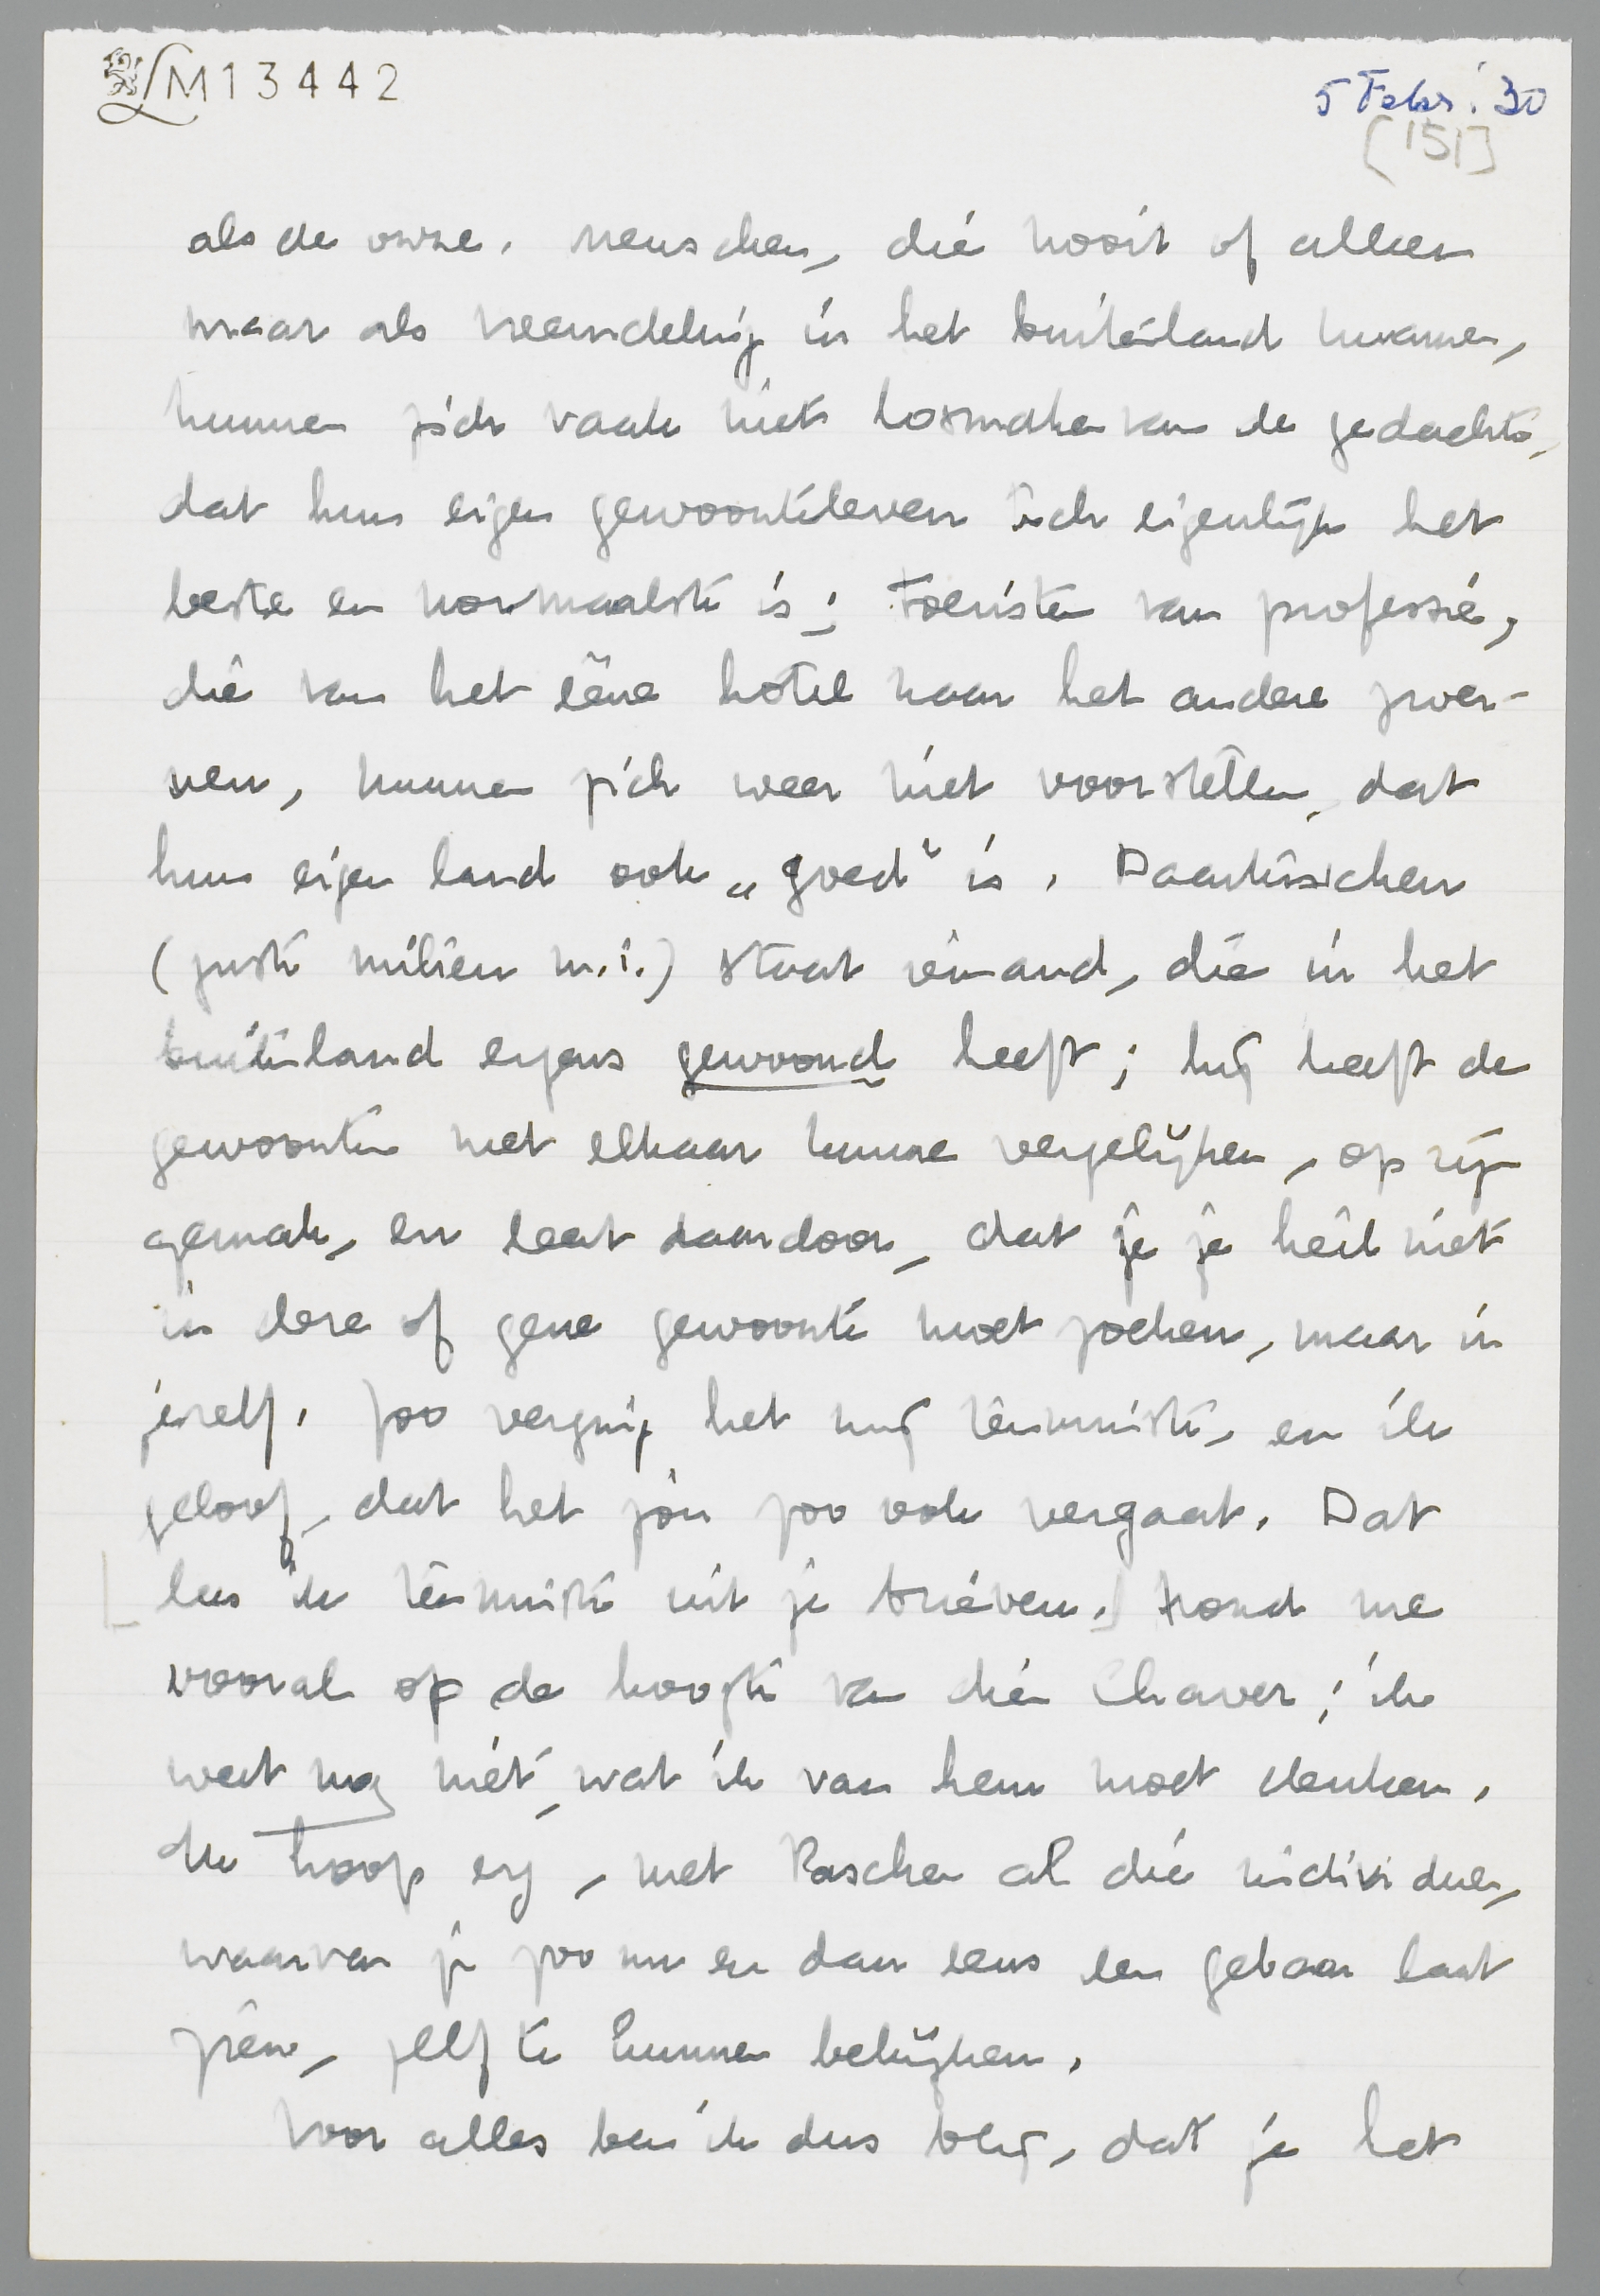 LM13442
5 Febr. '30
[151]
als de onze. Menschen, die nooit of alleen
maar als vreemdeling in het buitenland kwamen,
kunnen zich vaak niet losmaken van de gedachte,
dat hun eigen gewoonteleven toch eigenlijk het
beste en normaalste is; toeristen van professie,
die van het ééne hôtel naar het andere zwer-
ven, kunnen zich weer niet voorstellen, dat
hun eigen land ook „goed" is. Daartusschen
(juste milieu m.i.) staat iemand, die in het
buitenland ergens gewoond heeft; hij heeft de
gewoonten met elkaar kunnen vergelijken, op zijn
gemak, en leert daardoor, dat je je heil niet
in deze of gene gewoonte moet zoeken, maar in
jezelf. Zoo verging het mij tenminste, en ik
geloof, dat het jou zoo ook vergaat. Dat
lees ik tenminste uit je brieven.] Houd me
vooral op de hoogte van dien Chaver; ik
weet nog niet, wat ik van hem moet denken.
Ik hoop erg, met Paschen al die individuen,
waarvan je zoo nu en dan eens een gebaar laat
zien, zelf te kunnen bekijken.
Voor alles ben ik dus blij, dat je het